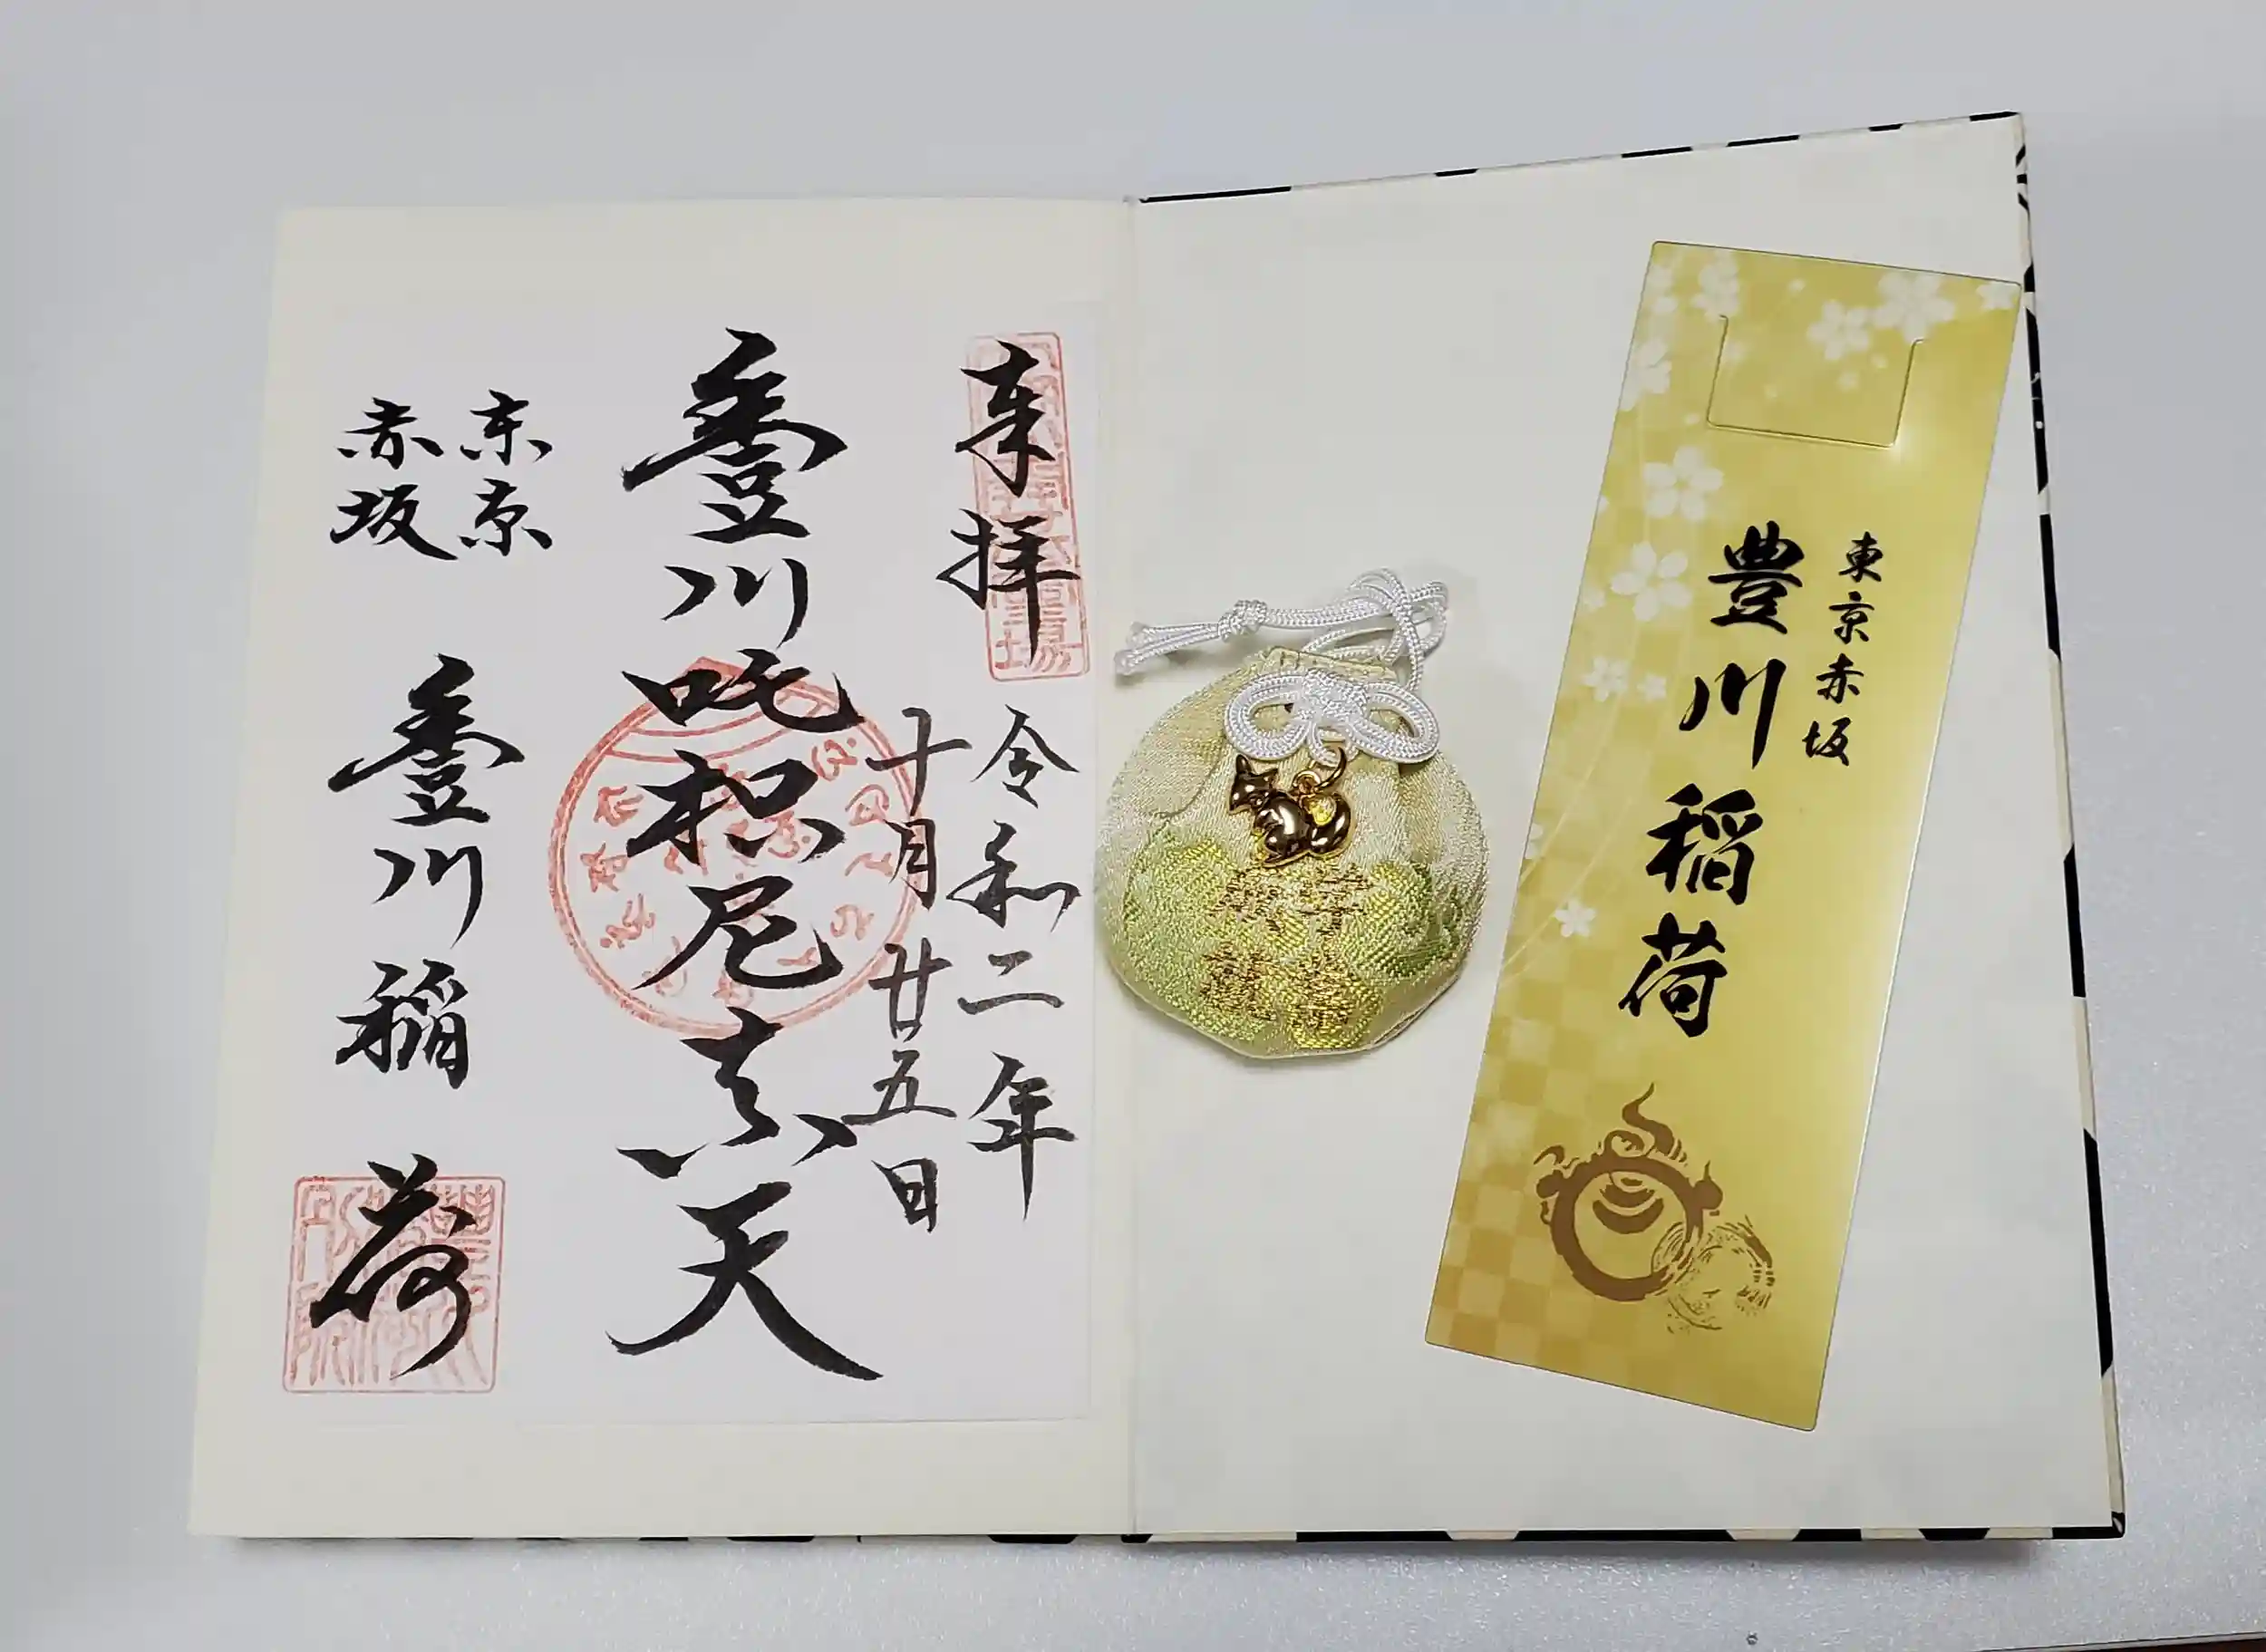 東京赤坂
豊川稲荷
奉拝
令和二年
十月廿五日
豊川吒枳尼真天
東京
赤坂
豊川稲荷